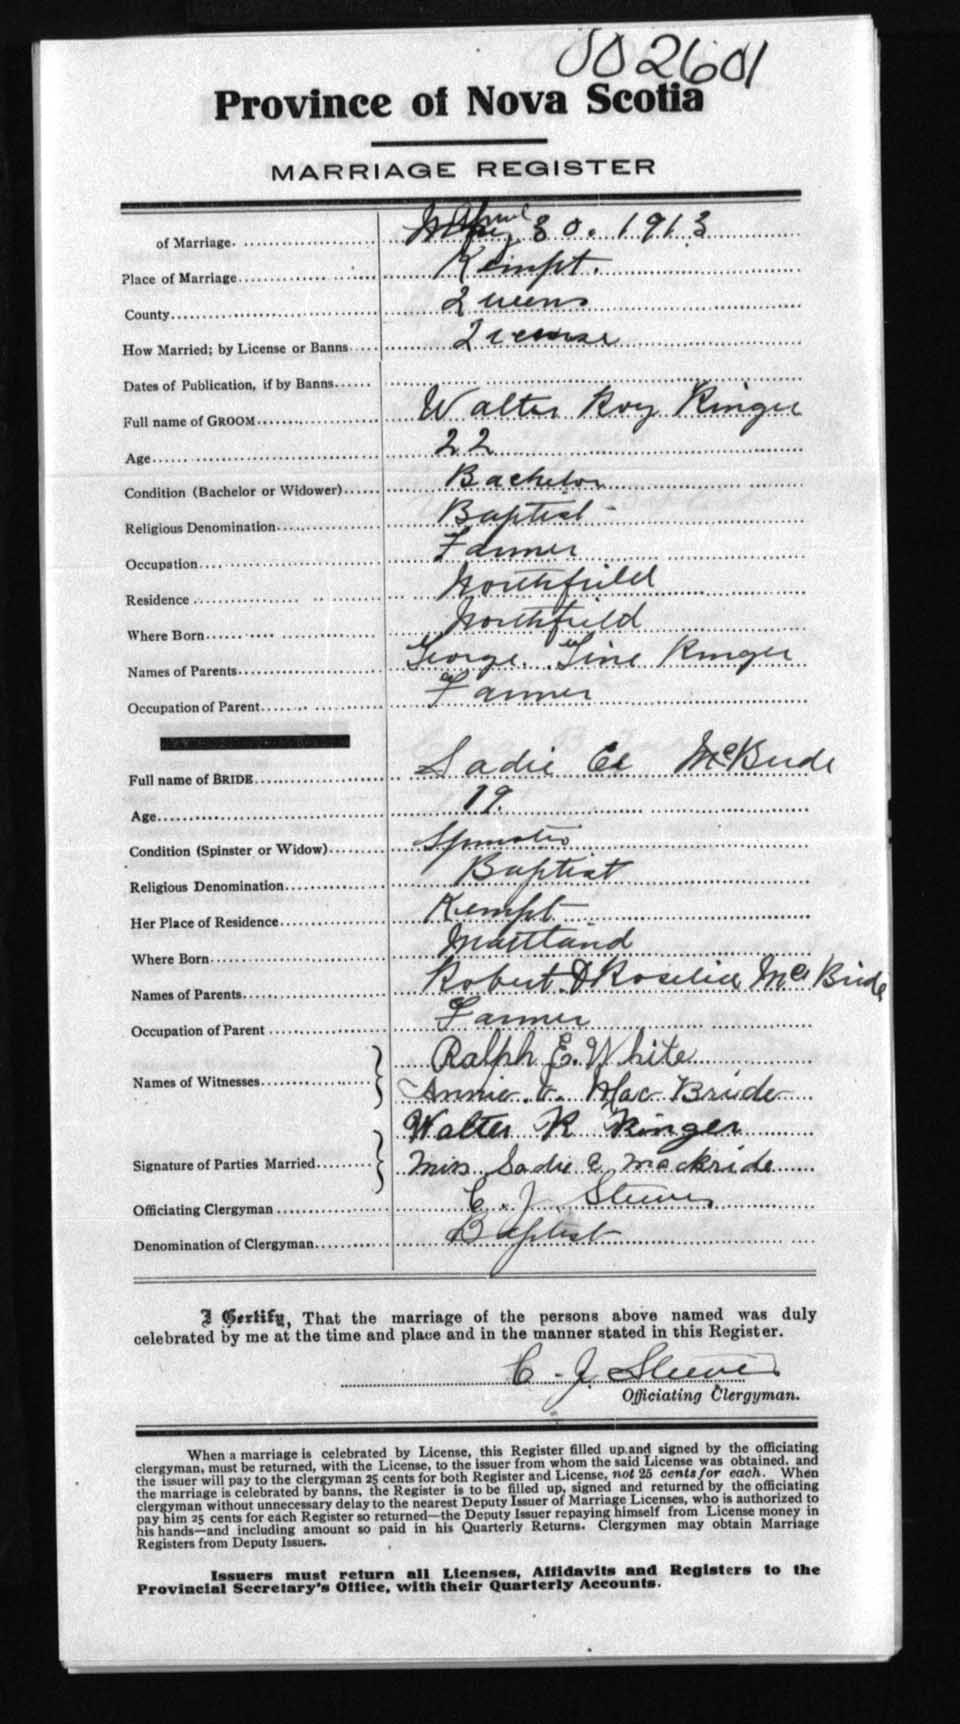 002601
Province of Nova Scotia
MARRIAGE REGISTER
of Marriage. April 30. 1913
Place of Marriage Kempt.
County Queens
How Married; by License or Banns License
Dates of Publication, if by Banns
Full name of GROOM Walter Roy Ringer
Age 22
Condition (Bachelor or Widower) Bachelor
Religious Denomination Baptist
Occupation Farmer
Residence Northfield
Where Born Northfield
Names of Parents George Tine Ringer
Occupation of Parent Farmer
Full name of BRIDE Sadie McBride
Age 19.
Condition (Spinster or Widow) Spinster
Religious Denomination Baptist
Her Place of Residence Kempt
Where Born Maitland
Names of Parents Robert & Roselia McBride
Occupation of Parent Farmer
Ralph E. White
Names of Witnesses Annie Mac Bride
Walter R Ringer
Signature of Parties Married Miss Sadie E mackride
Officiating Clergyman C. J. Steeves
Denomination of Clergyman Baptist
I Certify, That the marriage of the persons above named was duly
celebrated by me at the time and place and in the manner stated in this Register.
C. J. Steeves
Officiating Clergyman.
When a marriage is celebrated by License, this Register filled up and signed by the officiating
clergyman, must be returned, with the License, to the issuer from whom the said License was obtained, and
the issuer will pay to the clergyman 25 cents for both Register and License, not 25 cents for each. When
the marriage is celebrated by banns, the Register is to be filled up, signed and returned by the officiating
clergyman without unnecessary delay to the nearest Deputy Issuer of Marriage Licenses, who is authorized to
pay him 25 cents for each Register so returned—the Deputy Issuer repaying himself from License money in
his hands—and including amount so paid in his Quarterly Returns. Clergymen may obtain Marriage
Registers from Deputy Issuers.
Issuers must return all Licenses, Affidavits and Registers to the
Provincial Secretary's Office, with their Quarterly Accounts.